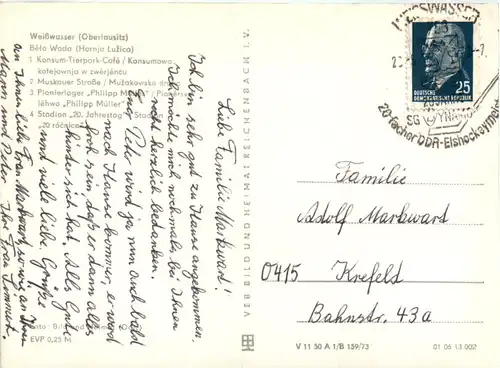 Weißwasser (Oberlausitz)
Běła Woda (Hornja Łužica)
1 Konsum-Tierpark-Café / Konsumowa
kofejownja w zwěrjencu
2 Muskauer Straße / Mužakowska
3 Pionierlager „Philipp Müller" / Pioněrske
lěhwo „Philipp Müller"
4 Stadion „20. Jahrestag" / Stadion
„20 róčnica"
EVP 0,25 M
Liebe Familie Markwart!
Ich bin sehr gut zu Hause angekommen.
Ich möchte mich nochmals bei Ihnen
recht herzlich bedanken.
Peter wird ja nun auch bald
nach Hause kommen, er wird
froh sein, daß er dann alles
hinter sich hat. Alles Gute
und viele liebe Grüße
an Ihnen liebe Frau Markwart, so wie an Ihren
Mann und Peter. Ihre Frau
VEB BILD UND HEIMAT REICHENBACH I. V.
WEISSWASSER
DEUTSCHE
DEMOKRATISCHE REPUBLIK
25
SG DYNAMO
20-facher DDR-Eishockeymeister
Familie
Adolf Markwart
0415 Krefeld
Bahnstr. 43a
V 11 50 A 1/B 159/73
01 06 13 002